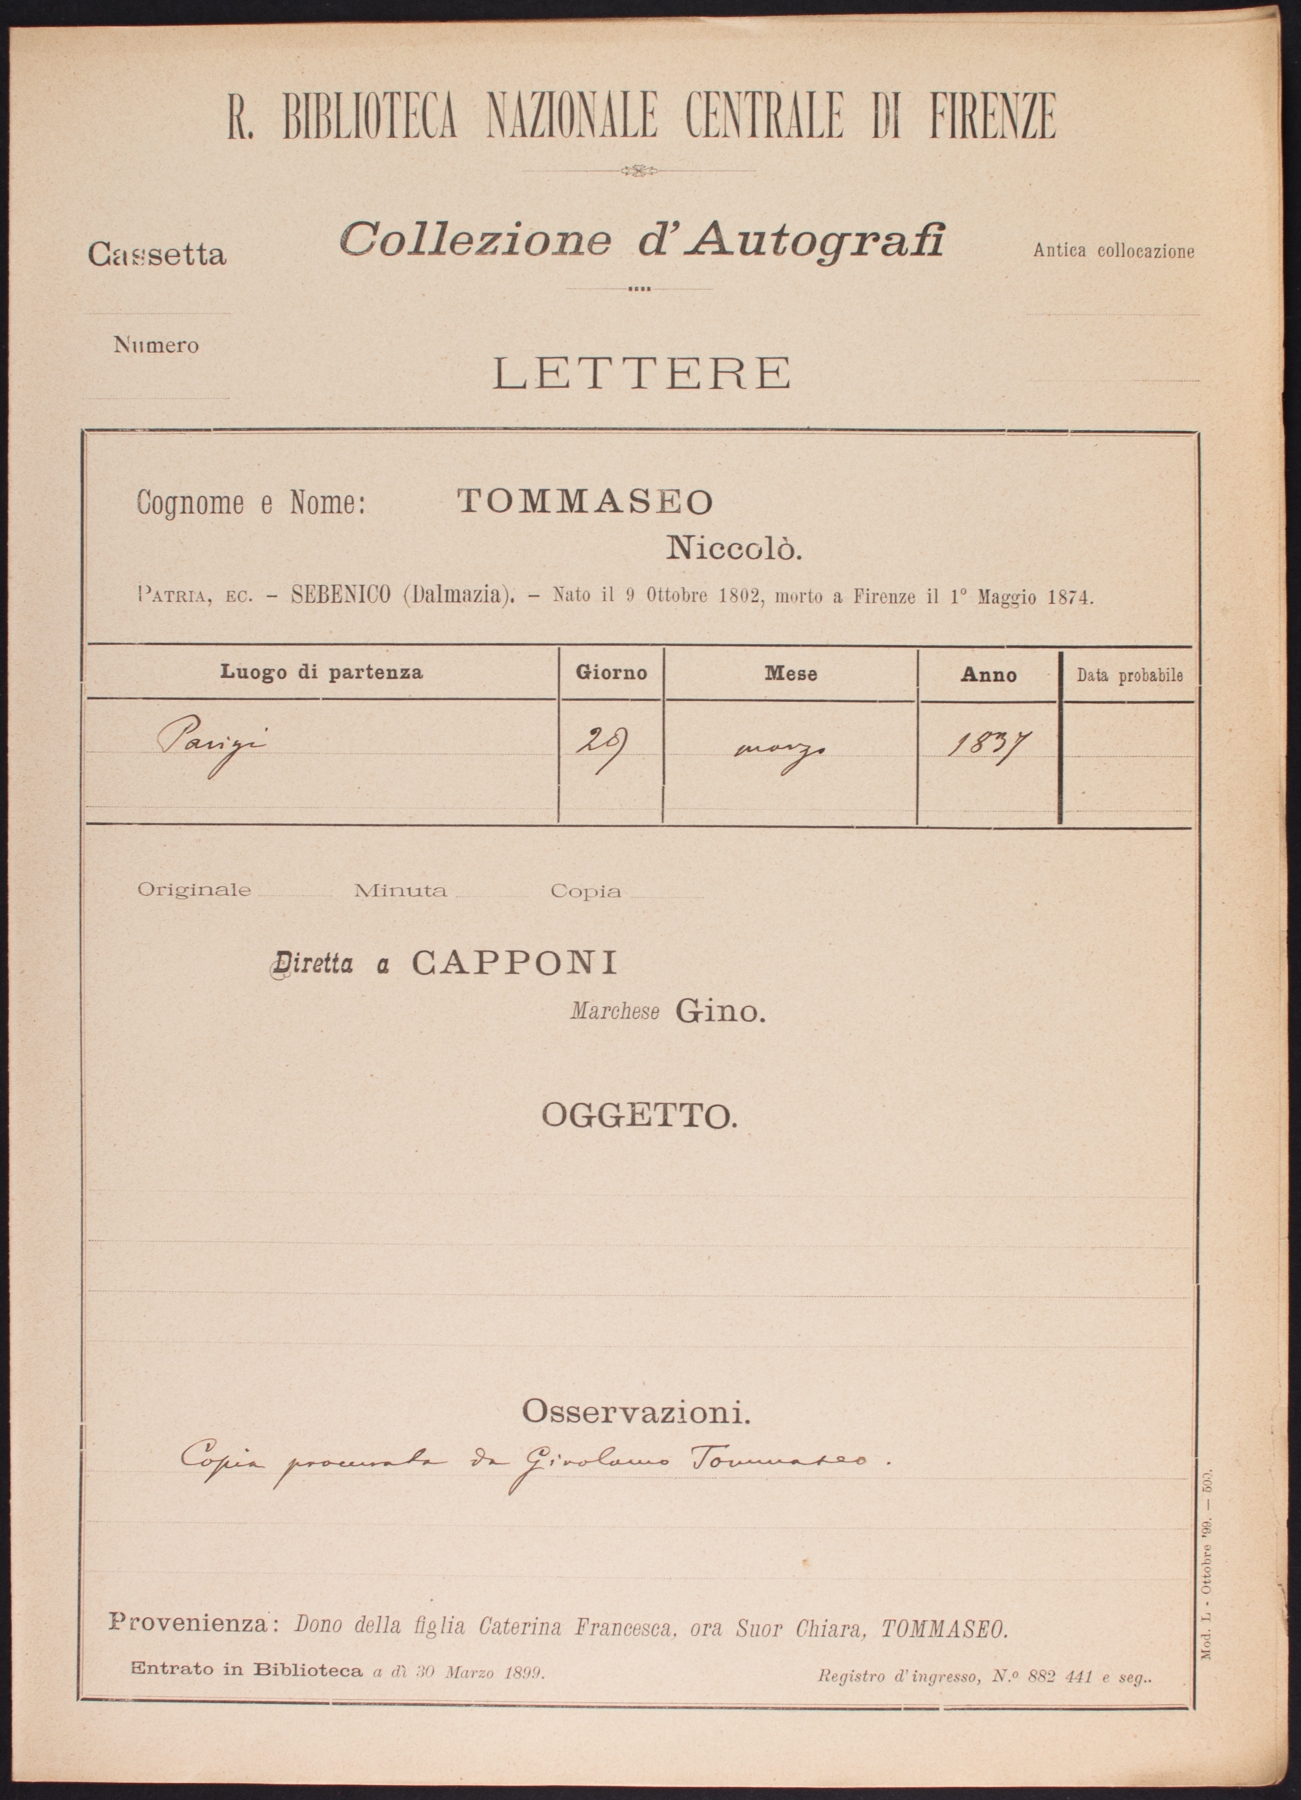 R. BIBLIOTECA NAZIONALE CENTRALE DI FIRENZE
Cassetta
Collezione d'Autografi
Antica collocazione
Numero
LETTERE
Cognome e Nome: TOMMASEO
Niccolò.
PATRIA, EC. – SEBENICO (Dalmazia). – Nato il 9 Ottobre 1802, morto a Firenze il 1º Maggio 1874.
Luogo di partenza Giorno Mese Anno Data probabile
Parigi 29 marzo 1837
Originale Minuta Copia
Diretta a CAPPONI
Marchese Gino.
OGGETTO.
Osservazioni.
Copia procurata da Girolamo Tommaseo.
Provenienza: Dono della figlia Caterina Francesca, ora Suor Chiara, TOMMASEO.
Entrato in Biblioteca a dì 30 Marzo 1899.
Registro d'ingresso, N.º 882 441 e seg..
Mod. L - Ottobre '99. — 500.